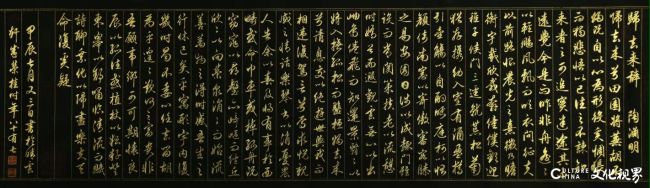 歸去來辭 陶淵明
歸去來兮田園將蕪胡不
歸既自以心為形役奚惆悵
而獨悲悟已往之不諫知
來者之可追實迷途其未
遠覺今是而昨非舟遙遙
以輕颺風飄飄而吹衣問征夫
以前路恨晨光之熹微乃瞻
衡宇載欣載奔僮僕歡迎
稚子候門三逕就荒松菊
猶存攜幼入室有酒盈樽
引壺觴以自酌眄庭柯以怡
顏倚南窗以寄傲審容膝
之易安園日涉以成趣門雖
設而常關策扶老以流憩
時矯首而遐觀雲無心以出
岫鳥倦飛而知還景翳翳以
將入撫孤松而盤桓歸去來
兮請息交以絕遊世與我而
相遺復駕言兮焉求悅親
戚之情話樂琴書以消憂農
人告余以春及將有事於西
疇或命巾車或棹孤舟既窈
窕以尋壑亦崎嶇而經丘
木欣欣以向榮泉涓涓而始流
善萬物之得時感吾生之
行休已矣乎寓形宇內復
幾時曷不委心任去留胡
為乎遑遑欲何之富貴非
吾願帝鄉不可期懷良
辰以孤往或植杖而耘耔登
東皋以舒嘯臨清流而賦
詩聊乘化以歸盡樂夫天
命復奚疑
甲辰七月又三日書於
CULTURE CHINA 文化视界